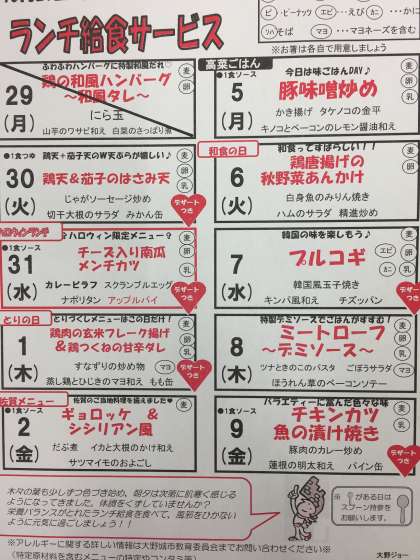 ランチ給食サービス
ピ …ピーナッツ エビ …えび カニ …かに
ソバ そば マヨ …マヨネーズを含む
※お箸は各自で用意しましょう
ふわふわハンバーグに特製和風だれ♡
29
(月)
鶏の和風ハンバーグ
～和風タレ～
にら玉
山芋のワサビ和え 白菜のさっぱり煮
麦
卵
乳
●1食つゆ
鶏天+茄子天のW天ぷらが嬉しい♪
30
(火)
鶏天&茄子のはさみ天
じゃがソーセージ炒め
切干大根のサラダ みかん缶
麦
卵
デザート
つき
ハロウィンランチ
●1食ソース
ハロウィン限定メニュー?
31
(水)
チーズ入り南瓜
メンチカツ
カレーピラフ スクランブルエッグ
ナポリタン アップルパイ
麦
卵
乳
デザート
つき
とりの日
とりづくしメニューはこの日だけ!
1
(木)
鶏肉の玄米フレーク揚げ
&鶏つくねの甘辛ダレ
すなずりの炒め物 マヨ
蒸し鶏とひじきのマヨ和え もも缶
麦
卵
乳
デザート
つき
佐賀メニュー
●1食ソース
佐賀のご当地料理を揃えました♡
2
(金)
ギョロッケ &
シシリアン風
だぶ煮 イカと大根のかけ和え
サツマイモのおよごし
麦
卵
乳
高菜ごはん
●1食ソース
今日は味ごはんDAY♪
5
(月)
豚味噌炒め
かき揚げ タケノコの金平
キノコとベーコンのレモン醤油和え
麦
卵
乳
和食の日
和食ってすばらしい!!
6
(火)
鶏唐揚げの
秋野菜あんかけ
白身魚のみりん焼き
ハムのサラダ 精進炒め
麦
卵
韓国の味を楽しもう♪
7
(水)
プルコギ
韓国風玉子焼き
キンパ風和え チヂッパン
エビ
カニ
麦
卵
乳
特製デミソースでごはんがすすむ!
8
(木)
ミートローフ
～デミソース～
ツナときのこのパスタ ごぼうサラダ マヨ
ほうれん草のベーコンソテー
麦
卵
乳
●1食ソース
バラエティーに富んだ色々な味
9
(金)
チキンカツ
魚の漬け焼き
豚肉のカレー炒め
蓮根の明太和え パイン缶
マヨ
麦
卵
乳
デザート
つき
木々の葉も少しずつ色づき始め、朝夕は次第に肌寒く感じる
ようになってきました。体調をくずしていませんか?
栄養バランスがとれたランチ給食を食べて、風邪をひかない
ように元気に過ごしましょう!!
※ がある日は
スプーン持参を
お願いします。
※アレルギーに関する詳しい情報は大野城市教育委員会までお問い合わせください※
大野ジョー